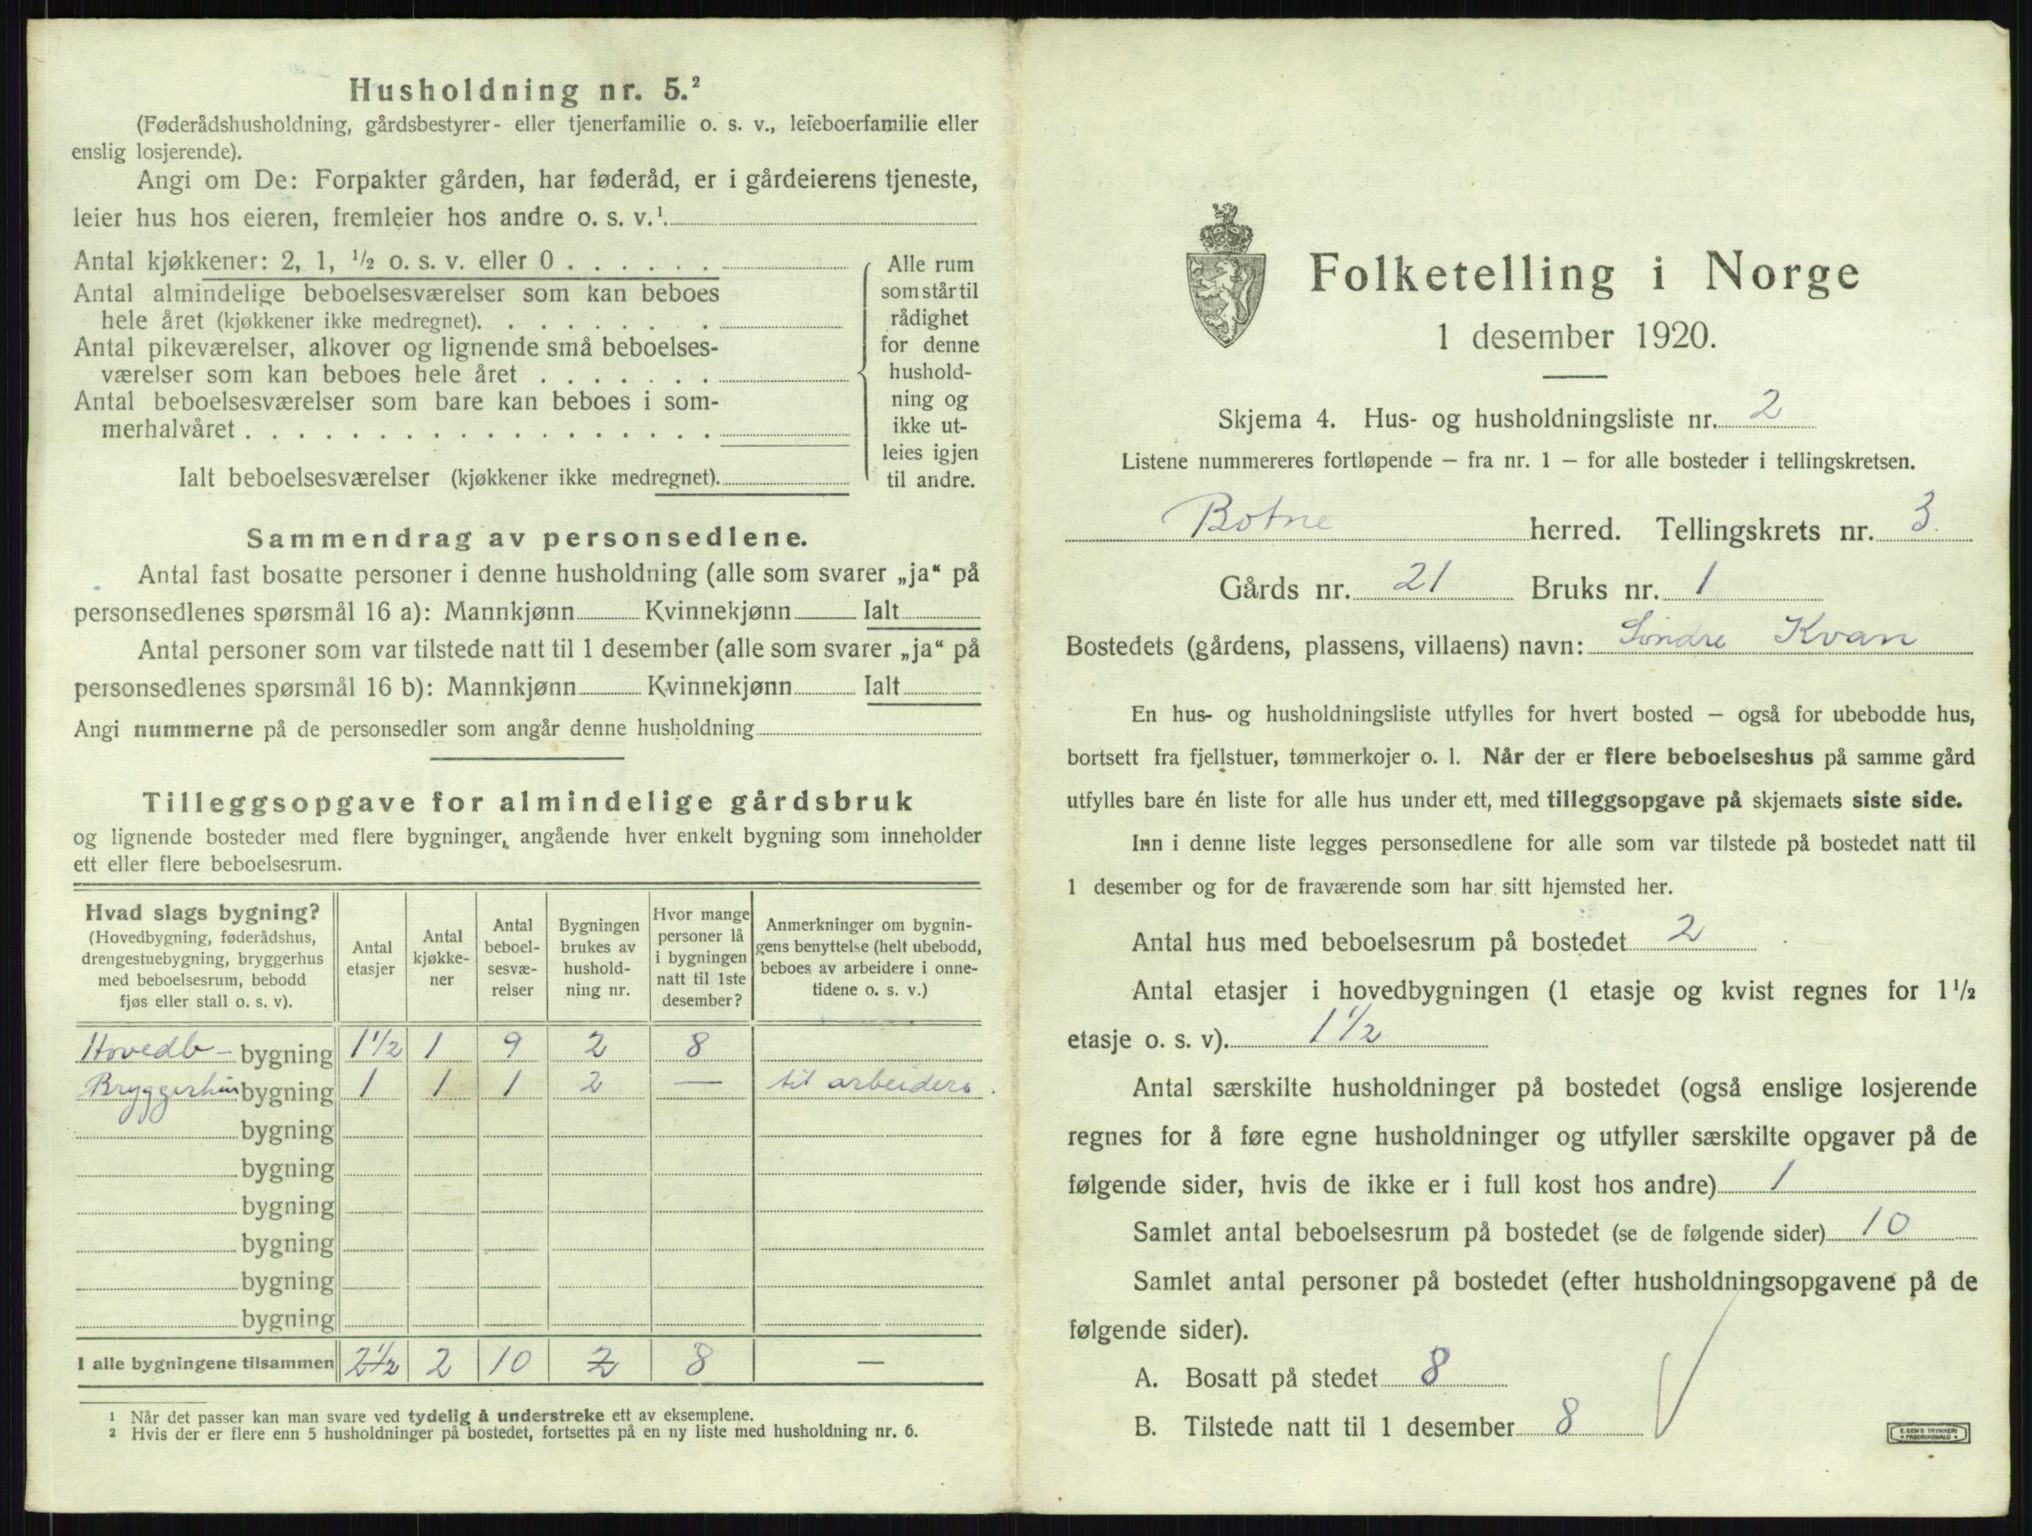 Husholdning nr. 5.²
(Føderådshusholdning, gårdsbestyrer- eller tjenerfamilie o. s. v., leieboerfamilie eller
enslig losjerende).
Angi om De: Forpakter gården, har føderåd, er i gårdeierens tjeneste,
leier hus hos eieren, fremleier hos andre o. s. v.¹.
Antal kjøkkener: 2, 1, ½ o. s. v. eller 0 . . . . . .
Antal almindelige beboelsesværelser som kan beboes
hele året (kjøkkener ikke medregnet). . . . . . . . .
Antal pikeværelser, alkover og lignende små beboelses-
værelser som kan beboes hele året . . . . . . .
Antal beboelsesværelser som bare kan beboes i som-
merhalvåret . . . . . . . . . . . . . . . . . .
Ialt beboelsesværelser (kjøkkener ikke medregnet).
Alle rum
som står til
rådighet
for denne
hushold-
ning og
ikke ut-
leies igjen
til andre.
Sammendrag av personsedlene.
Antal fast bosatte personer i denne husholdning (alle som svarer „ja“ på
personsedlenes spørsmål 16 a): Mannkjønn Kvinnekjønn Ialt
Antal personer som var tilstede natt til 1 desember (alle som svarer „ja“ på
personsedlenes spørsmål 16 b): Mannkjønn Kvinnekjønn Ialt
Angi nummerne på de personsedler som angår denne husholdning
Tilleggsopgave for almindelige gårdsbruk
og lignende bosteder med flere bygninger, angående hver enkelt bygning som inneholder
ett eller flere beboelsesrum.
Hvad slags bygning?
(Hovedbygning, føderådshus,
drengestuebygning, bryggerhus
med beboelsesrum, bebodd
fjøs eller stall o. s. v).
Antal
etasjer
Antal
kjøkke-
ner
Antal
beboel-
sesvæ-
relser
Bygningen
brukes av
hushold-
ning nr.
Hvor mange
personer lå
i bygningen
natt til 1ste
desember?
Anmerkninger om bygnin-
gens benyttelse (helt ubebodd,
beboes av arbeidere i onne-
tidene o. s. v.)
Hovedb- bygning 1½ 1 9 2 8
Bryggerhus bygning 1 1 1 2 — til arbeidere.
bygning
bygning
bygning
bygning
bygning
bygning
I alle bygningene tilsammen 2½ 2 10 2 8 —
¹ Når det passer kan man svare ved tydelig å understreke ett av eksemplene.
² Hvis der er flere enn 5 husholdninger på bostedet, fortsettes på en ny liste med husholdning nr. 6.
Folketelling i Norge
1 desember 1920.
Skjema 4. Hus- og husholdningsliste nr. 2
Listene nummereres fortløpende – fra nr. 1 – for alle bosteder i tellingskretsen.
Botne herred. Tellingskrets nr. 3.
Gårds nr. 21 Bruks nr. 1
Bostedets (gårdens, plassens, villaens) navn: Søndre Kvan
En hus- og husholdningsliste utfylles for hvert bosted – også for ubebodde hus,
bortsett fra fjellstuer, tømmerkojer o. l. Når der er flere beboelseshus på samme gård
utfylles bare én liste for alle hus under ett, med tilleggsopgave på skjemaets siste side.
Inn i denne liste legges personsedlene for alle som var tilstede på bostedet natt til
1 desember og for de fraværende som har sitt hjemsted her.
Antal hus med beboelsesrum på bostedet 2
Antal etasjer i hovedbygningen (1 etasje og kvist regnes for 1½
etasje o. s. v). 1½
Antal særskilte husholdninger på bostedet (også enslige losjerende
regnes for å føre egne husholdninger og utfyller særskilte opgaver på de
følgende sider, hvis de ikke er i full kost hos andre) 1
Samlet antal beboelsesrum på bostedet (se de følgende sider) 10
Samlet antal personer på bostedet (efter husholdningsopgavene på de
følgende sider).
A. Bosatt på stedet 8
B. Tilstede natt til 1 desember 8